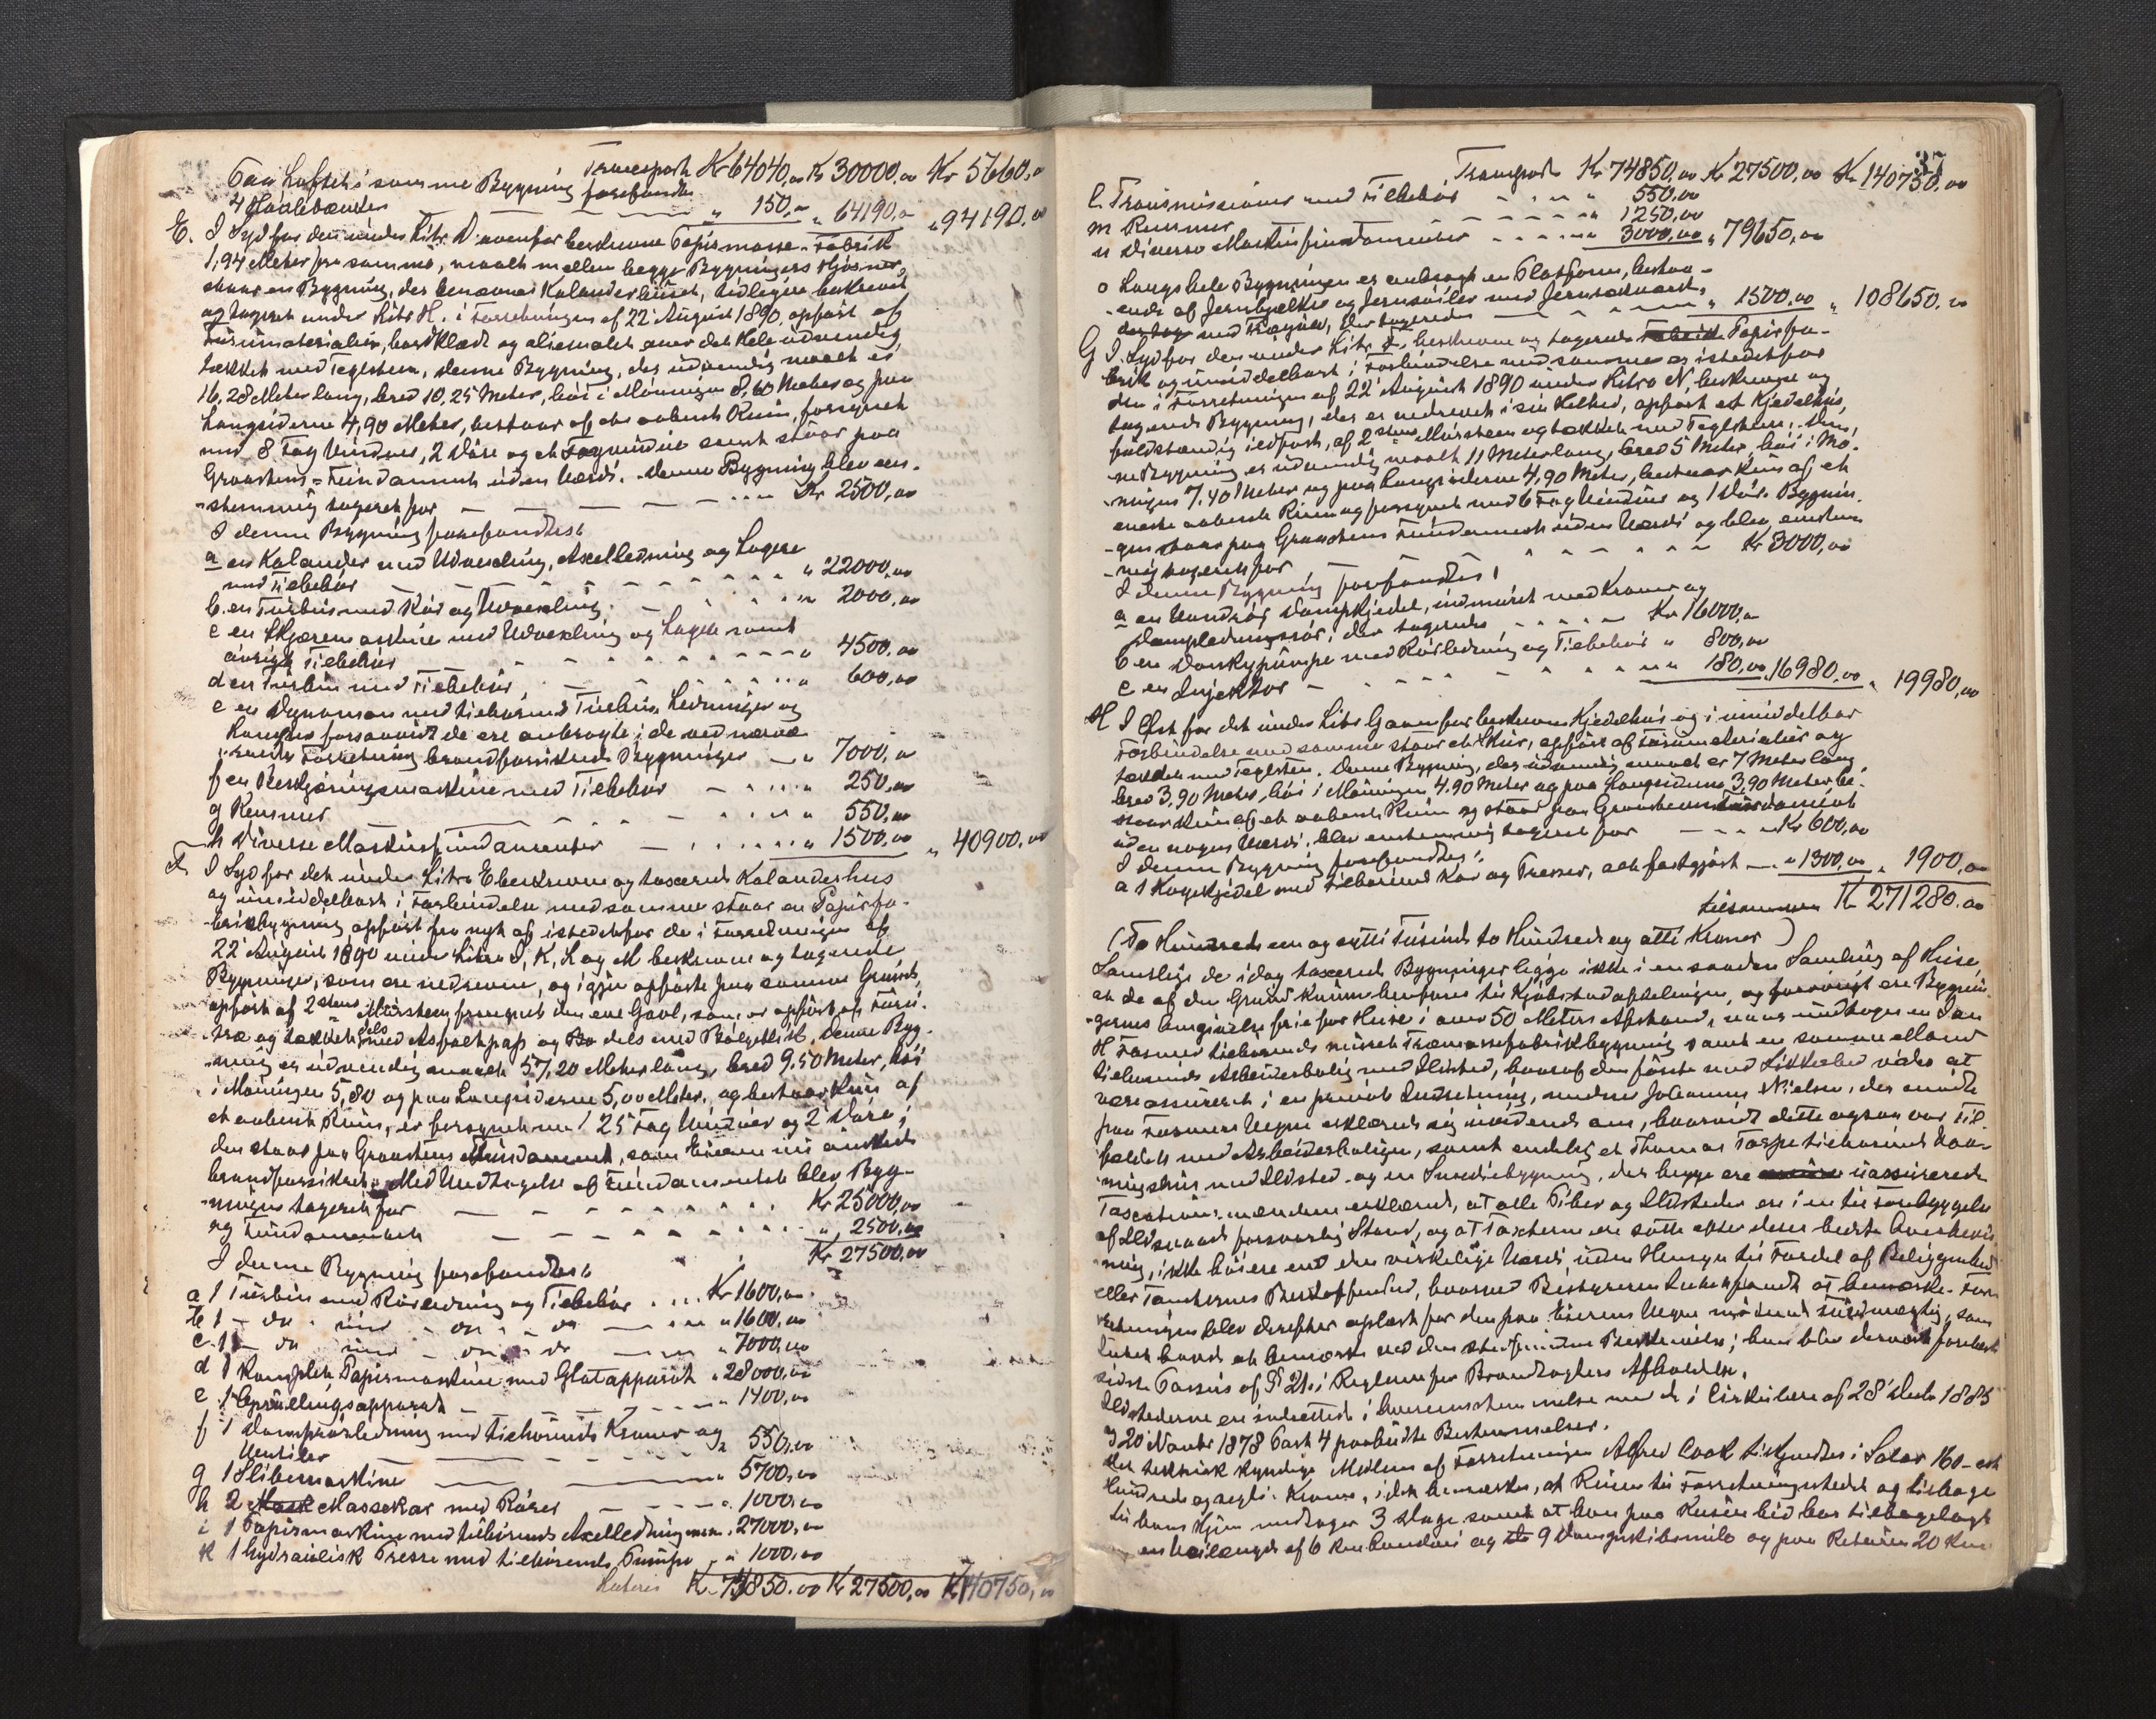 Transport Kr 64040,00 Kr 30000,00 Kr 5660,00
Paa Loftet i samme Bygning forefandtes
4 Høvlebænke " 150,00 " 64190,00 " 94190.00
E. I Syd for den under Litr. D ovenfor beskrevne Papirmasse-Fabrik
1,94 Meter fra samme, maalt mellem begge Bygningers Hjørner,
staar en Bygning, der benævnes Kalanderhuset, tidligere beskrevet
og taxeret under Litr H. i Forretningen af 22 August 1890, opført af
Furumaterialer, bordklædt og oliemalet over det Hele udvendig
tækket med Teglsten, denne Bygning, der udvendig maalt er
16,28 Meter lang, bred 10,25 Meter, høi i Møningen 8,60 Meter og paa
Langsiderne 4,90 Meter, bestaar af et aabent Rum, forsynet
med 8 Fag Vinduer, 2 Døre og et Fagvindue samt staar paa
Graastens-Fundament uden Værdi. Denne Bygning blev een-
stemmig taxeret for Kr 2500,00
I denne Bygning forefandtes:
a en Kalander med Udvexling, Axelledning og Lagere
med Tilbehør " 22000,00
b. en Turbin med Rør og Udvexling " 2000,00
c en Skjæremaskine med Udvexling og Lagere samt
øvrigt Tilbehør " 4500,00
d en Turbin med Tilbehør " 600,00
e en Dynamo med tilhørende Turbin, Ledninger og
Lamper forsaavidt de ere anbragte i de ved nærvæ-
rende Forretning brandforsikrede Bygninger " 7000,00
f en Verktøimaskine med Tilbehør " 250,00
g Remmer " 550,00
h Diverse Maskinfundamenter " 1500,00 " 40900,00
F. I Syd for det under Litra E beskrevne og taxerede Kalanderhus
og umiddelbart i Forbindelse med samme staar en Papirfa-
briksbygning opført fra nyt af istedetfor de i Forretningen af
22 August 1890 under Litra I, K, L og M beskrevne og taxerede
Bygninger, som ere nedrevne, og igjen opførte paa samme Grund,
opført af 2 Stens Mursten fraregnet den ene Gavl, som er opført af Furu-
træ og tækket dels med Asfaltpap og dels med Bølgeblik. Denne Byg-
ning er udvendig maalt 57,20 Meter lang, bred 9,50 Meter, høi
i Møningen 5,80 og paa Langsiderne 5,00 Meter, og bestaar kun af
et aabent Rum, er forsynet med 25 Fag Vinduer og 2 Døre;
den staar paa Graastens Fundament, som Eieren nu ønsker
brandforsikret. Med Undtagelse af Fundamentet blev Byg-
ningen taxeret for Kr 25000,00
og Fundamentet " 2500,00
Kr 27500,00
I denne Bygning forefandtes:
a 1 Turbin med Rørledning og Tilbehør Kr 1600,00
b 1 - do - med - do - do " 1600,00
c 1 - do med - do - do " 7000,00
d 1 komplet Papirmaskine med Glatapparat " 28000,00
e 1 Oprullingsapparat " 1400,00
f 1 Damprørledning med tilhørende Kraner og
Ventiler " 550,00
g 1 Slibemaskine " 5700,00
h 2 Massekar med Rører " 1000,00
i 1 Papirmaskine med tilhørende Axelledning m.m. " 27000,00
k 1 hydraulisk Presse med tilhørende Pumpe " 1000,00
Lateris Kr 74850.00 Kr 27500,00 Kr 140750,00
37
Transport Kr 74850,00 Kr 27500,00 Kr 140750,00
l. Transmissioner med Tilbehør " 550,00
m Remmer " 1250,00
n Diverse Maskinfundamenter " 3000,00 " 79650,00
o Langs hele Bygningen er anbragt en Platform, bestaa-
ende af Jernbjelker og Jernsøiler med Jernrækværk,
med Trægulv, der taxeredes " 1500,00 " 108650.00
G I Syd for den under Litr F. beskrevne og taxerede Papirfa-
brik og umiddelbart i Forbindelse med samme og istedetfor
den i Forretningen af 22 August 1890 under Litra N, beskrevne og
taxerede Bygning, der er nedrevet i sin Helhed, opført et Kjedelhus,
fuldstændig ildfast, af 2 Stens Mursten og tækket med Teglsten. Den-
ne Bygning er udvendig maalt 11 Meter lang, bred 5 Meter, høi i Mø-
ningen 7,40 Meter og paa Langsiderne 4,90 Meter, bestaar kun af et
eneste aabent Rum og forsynet med 6 Fag Vinduer og 1 Dør. Bygnin-
gen staar paa Graastens Fundament uden Værdi og blev enstem-
mig taxeret for Kr 3000,00
I denne Bygning forefandtes:
a en Vandrør Dampkjedel, indmuret med Kraner og
Dampledningsrør, der taxeredes Kr 16000,00
b en Donkypumpe med Rørledning og Tilbehør " 800,00
c en Injektor " 180,00 " 16980,00 " 19980,00
H I Øst for det under Litr G ovenfor beskrevne Kjedelhus og i umiddelbar
Forbindelse med samme staar et Skur, opført af Furumaterialer og
tækket med Teglsten. Denne Bygning, der udvendig maalt er 7 Meter lang,
bred 3,90 Meter, høi i Møningen 4.90 Meter og paa Langsiderne 3,90 Meter be-
staar kun af et aabent Rum og staar paa Graastens Fundament
uden nogen Værdi, blev enstemmig taxeret for Kr 600,00
I denne Bygning forefandtes:
a 1 Kogekjedel med tilhørende Kar og Presser, alt fastgjort " 1300,00 " 1900,00
tilsammen Kr 271280.00
(To Hundrede een og sytti Tusinde to Hundrede og otti Kroner)
Samtlige de idag taxerede Bygninger ligge ikke i en saadan Samling af Huse,
at de af den Grund kunne henføres til Kjøbstadafdelingen, og forøvrigt ere Bygnin-
gernes Omgivelser frie for Huse i over 50 Meters Afstand, naar undtages en Jan
H Fasmer tilhørende nuværende Træmassefabrikbygning samt en samme Mand
tilhørende Arbeiderbolig med Ildsted, hvoraf den første med Sikkerhed vides at
være assureret i en privat Indretning, medens Johannes Nielsen, der mødte
paa Fasmers Vegne erklærede sig uvidende om, hvorvidt dette ogsaa var Til-
fældet med Arbeiderboligen, samt endelig et Thomas Torpe tilhørende Vaa-
ningshus med Ildsted og en Smediebygning, der begge ere uassurerede
Taxationsmændene erklærede, at alle Piber og Ildsteder ere i en til Forebyggelse
af Ildsvaade forsvarlig Stand, og at Taxterne ere satte efter deres bedste Overbevis-
ning, ikke høiere end den virkelige Værdi uden Hensyn til Fordel af Beliggenhed
eller Tomternes Beskaffenhed, hvorved Bestyreren Intet fandt at bemærke. For-
retningen blev derefter oplæst for den paa Eierens Vegne mødende Fuldmægtig, som
Intet havde at bemærke ved den stedfundne Beskrivelse; han blev dernæst forelæst
sidste Passus af § 21 i Reglerne for Brandtaxters Afholdelse.
Ildstederne ere indrettede i Overensstemmelse med de i Cirkulære af 28 1885
og 20 Novbr 1878 Post 4 paabudte Bestemmelser.
Det teknisk kyndige Medlem af Forretningen Alfred Cook tilkjendtes i Salær 160 - et
Hundrede og sexti - Kroner, idet bemærkes, at Reisen til Forretningsstedet og tilbage
til hans Hjem medtager 3 Dage samt at han paa Reisen hid har tilbagelagt
en Veilængde af 6 Km Landvei og 9 Dampskibsmile og paa Returen 20 Km